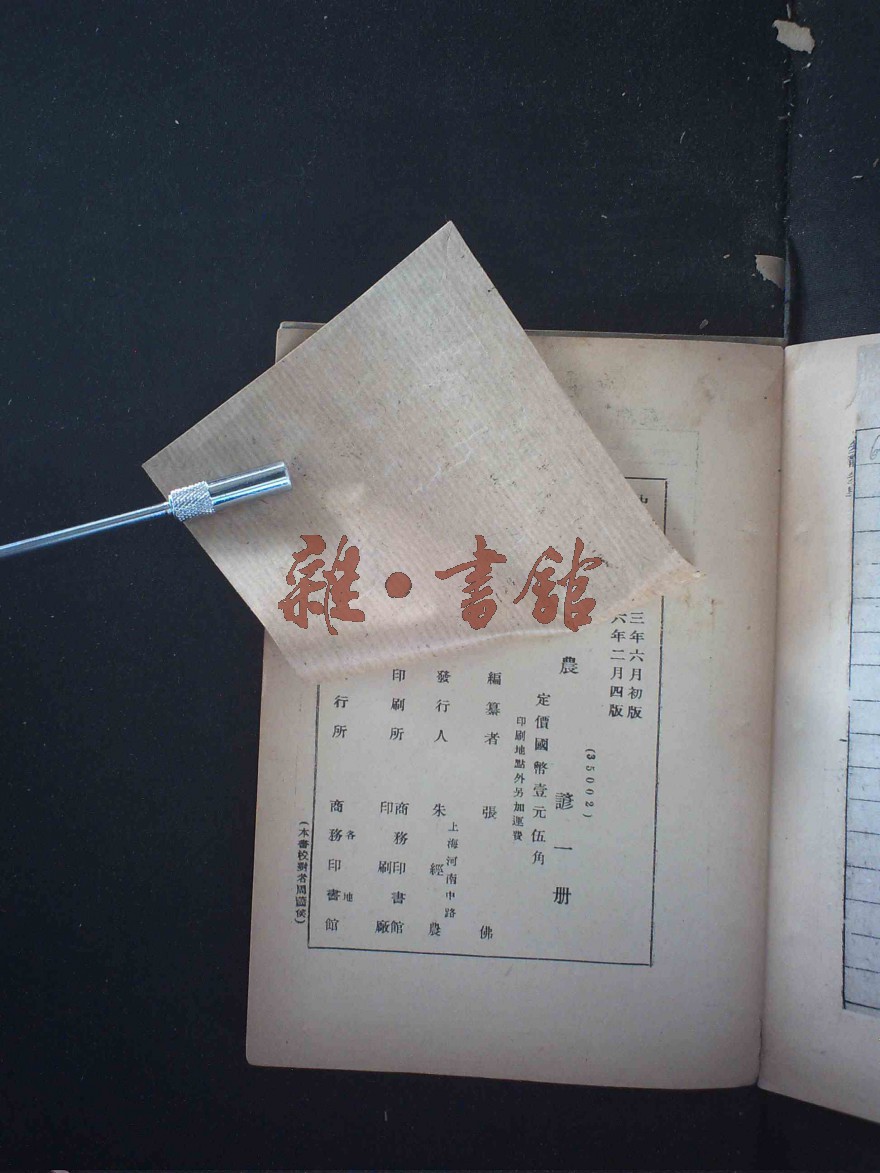 雜·書館
三年六月初版
六年二月四版
(35002)
農諺一册
定價國幣壹元伍角
印刷地點外另加運費
編纂者 張佛
上海河南中路
發行人 朱經農
印刷所 商務印書館
印刷廠
行所 商務印書館
各地